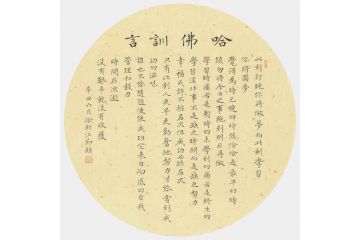 哈佛訓言
此刻打盹你將做夢而此刻學習
你將圓夢
覺得為時已晚的時候恰恰是最早的時
候勿將今日之事拖到明日再做
學習時痛苦是暫時的未學到的痛苦是終生的
學習這件事不是缺乏時間而是缺乏努力
幸福或許不排名次但成功必排名次
只有比別人更早更勤奮地努力才能嘗到成
功的滋味
誰也不能隨隨便便成功它來自徹底的自我
管理和毅力
時間在流逝
沒有艱辛就沒有收穫
辛丑六月